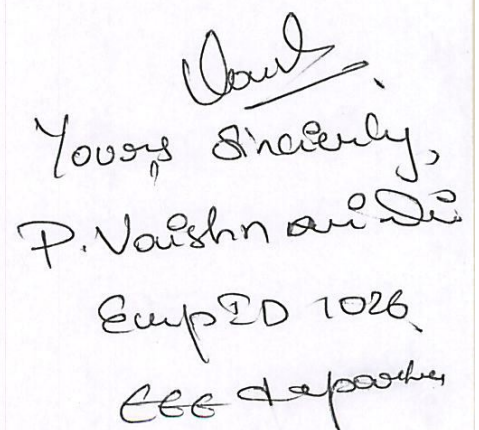 Yours Sincierly,
P. Vaishnavi Devi
Emp ID 1026
EEE department